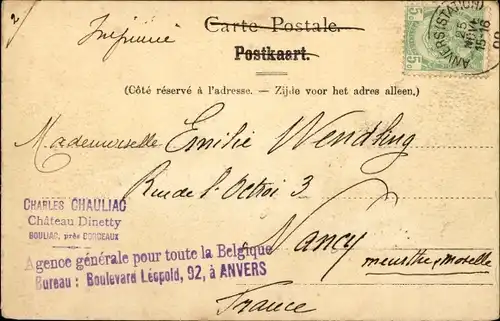 2
Carte Postale.
Imprimé
Postkaart.
(Côté réservé à l'adresse. — Zijde voor het adres alleen.)
ANVERS (STATION)
25
15-16
5c 5c
Mademoiselle Emilie Wendling
Rue de l'Octroi 3
Nancy
meurthe & moselle
France
CHARLES CHAULIAC
Château Dinetty
BOULIAC, près BORDEAUX
Agence générale pour toute la Belgique
Bureau : Boulevard Léopold, 92, à ANVERS